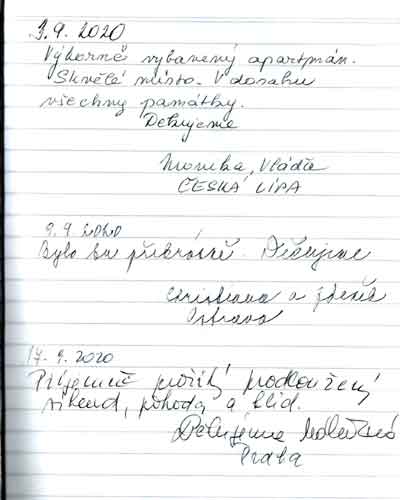 3.9.2020
Výborně vybavený apartmán.
Skvělé místo. V dosahu
všechny památky.
Děkujeme
Monika, Vláďa
ČESKÁ LÍPA
9.9.2020
Bylo to překrásné. Děkujeme
Christiana a Zdeněk
Ostrava
17.9.2020
Příjemně prožitý prodloužený
víkend, pohoda a klid.
Děkujeme
Praha